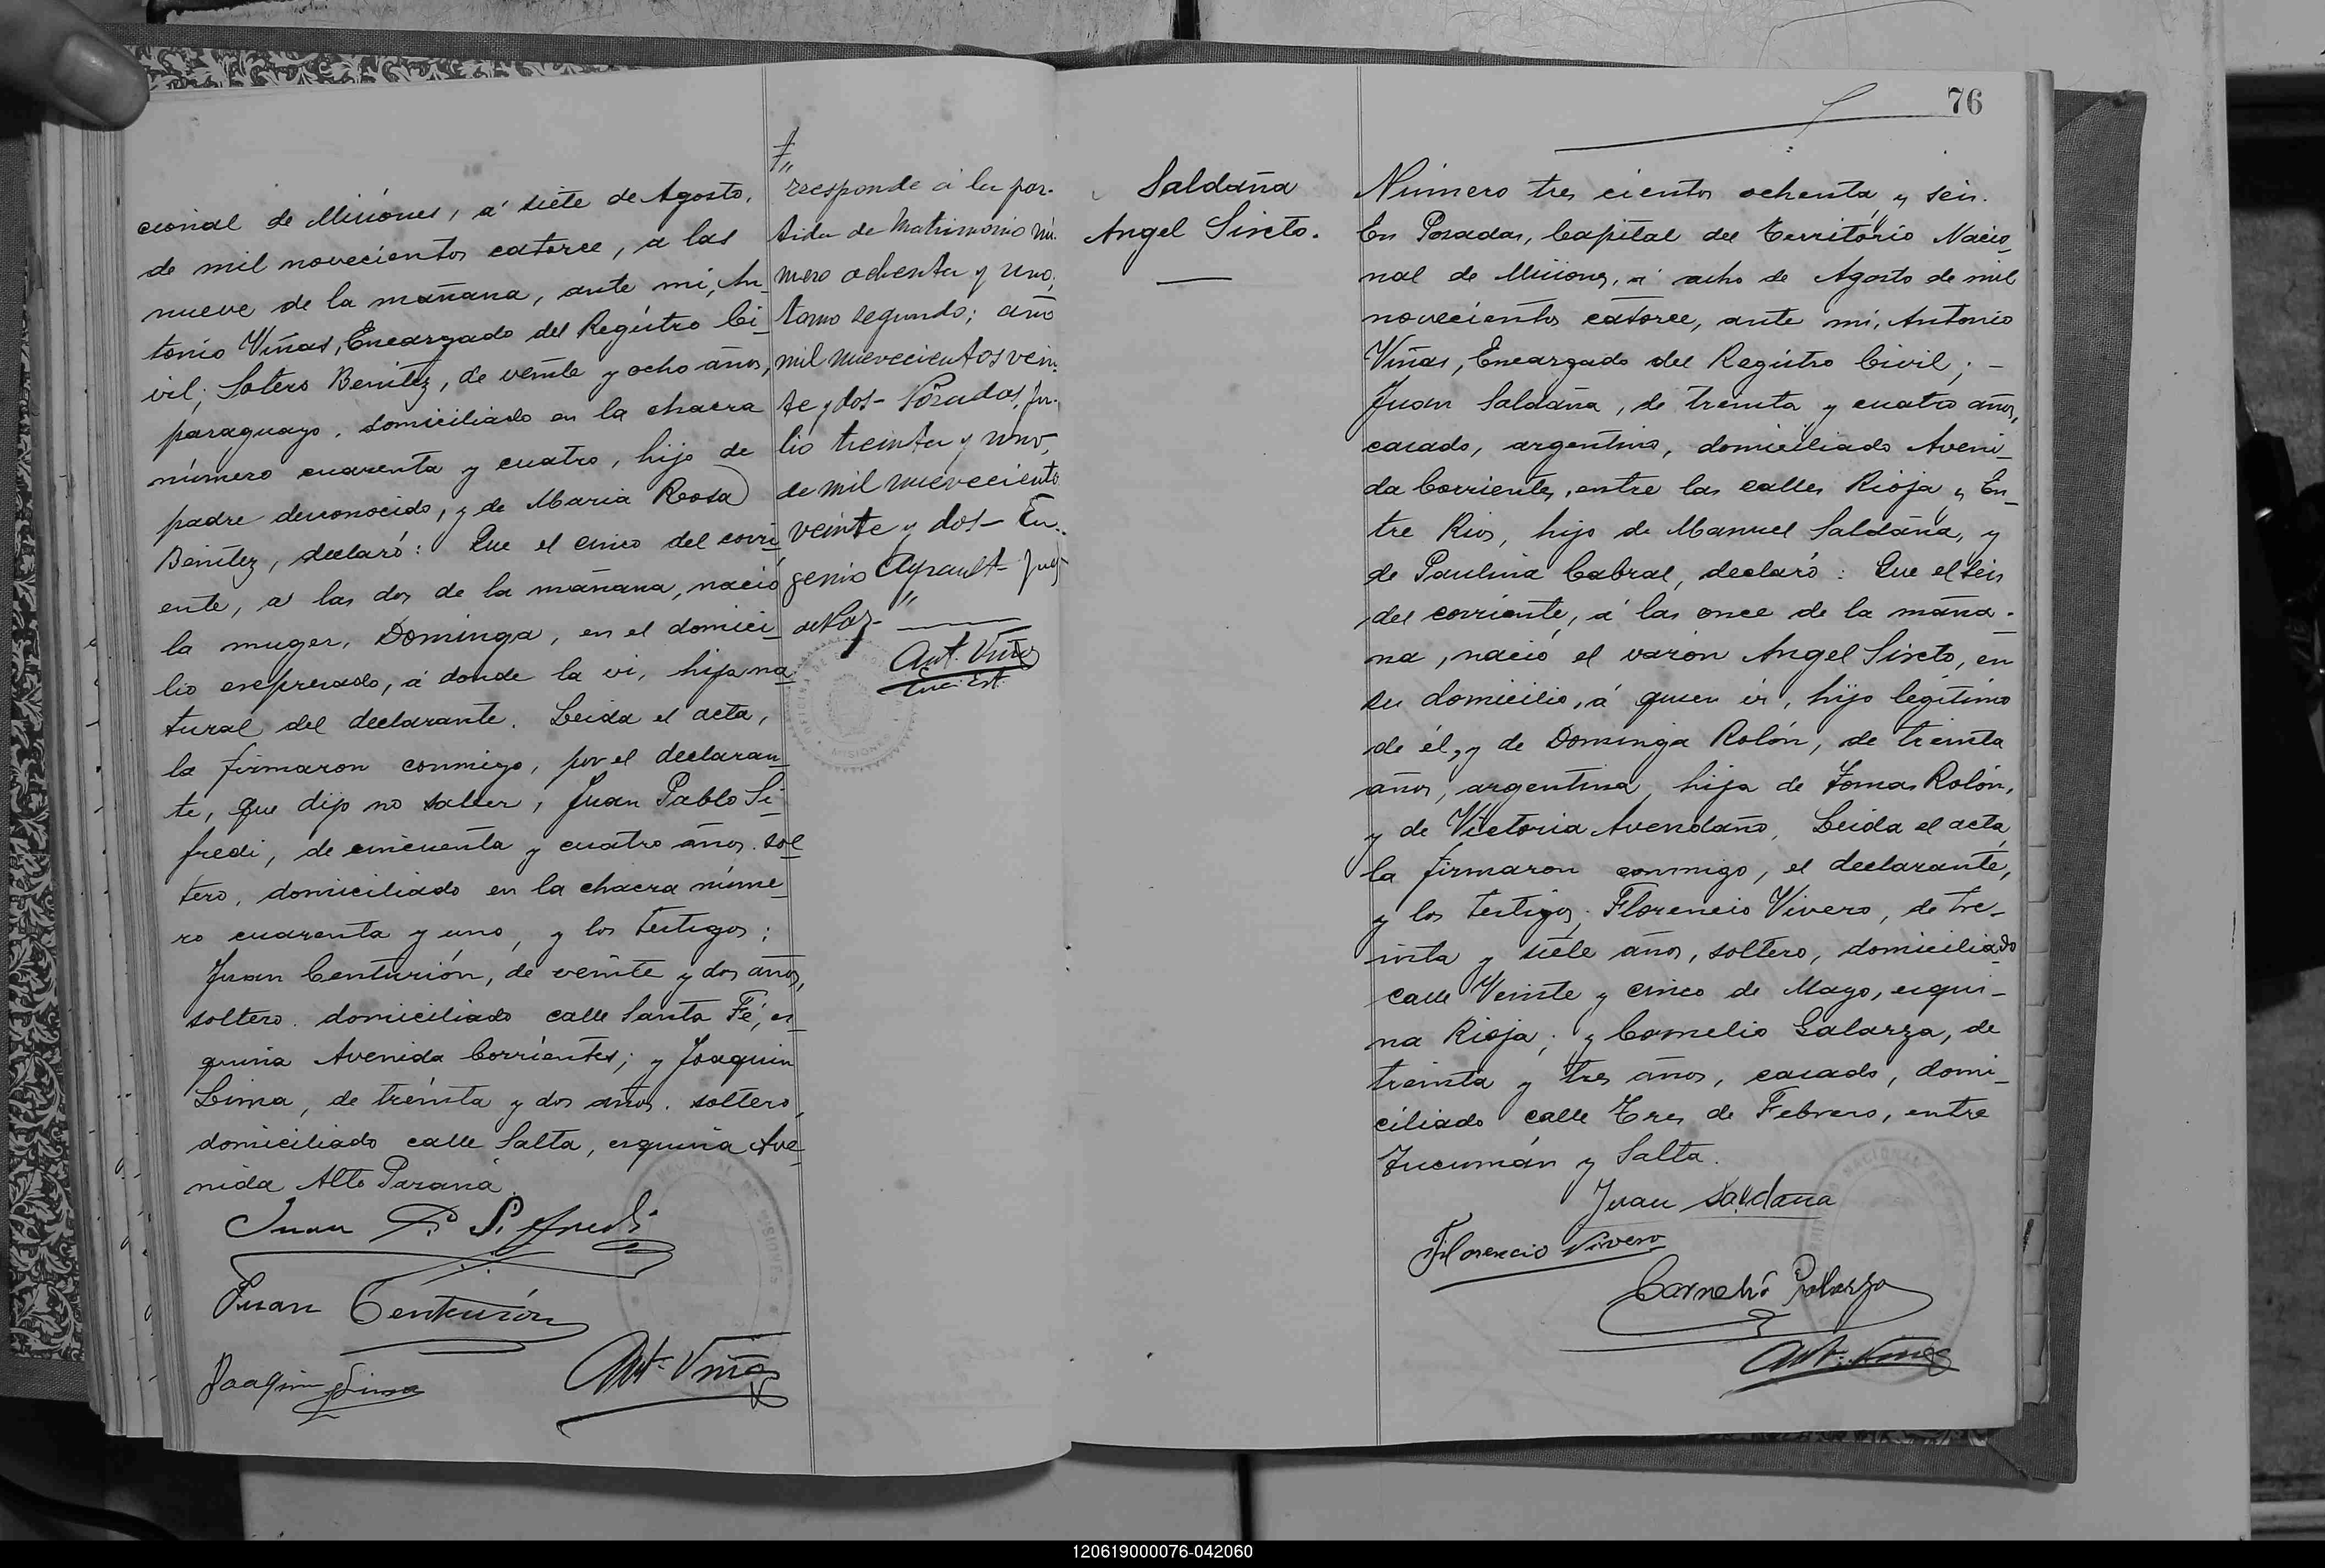 cional de Misiones, á siete de Agosto,
de mil novecientos catorce, a las
nueve de la mañana, ante mi, An_
tonio Viñas, Encargado del Registro Ci_
vil; Sotero Benitez, de veinte y ocho años,
paraguayo, domiciliado en la chacra
número cuarenta y cuatro, hijo de
padre desconocido, y de Maria Rosa
Benitez, declaró: Que el cinco del corri_
ente, a las dos de la mañana, nació
la muger, Dominga, en el domici_
lio expresado, á donde la vi, hija na_
tural del declarante. Leida el acta,
la firmaron conmigo, por el declaran_
te, que dijo no saber, Juan Pablo Si_
fredi, de cincuenta y cuatro años, sol_
tero, domiciliado en la chacra núme_
ro cuarenta y uno, y los testigos:
Juan Centurión, de veinte y dos años,
soltero, domiciliado calle Santa Fé, es_
quina Avenida Corrientes; y Joaquin
Lima, de treinta y dos años, soltero,
domiciliado calle Salta, esquina Ave_
nida Alto Paraná.
Juan P. Sifredi
Juan Centurión
Joaquin Lima
Ant. Viñas
rresponde á la par-
tida de Matrimonio nú-
mero ochenta y uno,
tomo segundo; año
mil nuevecientos vein-
te y dos- Posadas, Ju-
lio treinta y uno,
de mil nuevecientos
veinte y dos- Eu-
genio Ayrault- Juez
de Paz-
Ant. Viñas
MISIONES
76
Saldaña
Angel Sixto.
Número tres cientos ochenta y seis.
En Posadas, Capital del Territorio Nacio_
nal de Misiones, á ocho de Agosto de mil
novecientos catorce, ante mi, Antonio
Viñas, Encargado del Registro Civil; -
Juan Saldaña, de treinta y cuatro años,
casado, argentino, domiciliado Aveni_
da Corrientes, entre las calles Rioja y En_
tre Rios, hijo de Manuel Saldaña, y
de Paulina Cabral, declaró: Que el seis
del corriente, á las once de la maña-
na, nació el varón Angel Sixto, en
su domicilio, á quien vi, hijo legítimo
de él, y de Dominga Rolón, de treinta
años, argentina, hija de Tomas Rolón,
y de Victoria Avendaño. Leida el acta,
la firmaron conmigo, el declarante,
y los testigos: Florencio Vivero, de tre-
inta y siete años, soltero, domiciliado
calle Veinte y cinco de Mayo, esqui-
na Rioja; y Cornelio Galarza, de
treinta y tres años, casado, domi_
ciliado calle Tres de Febrero, entre
Tucumán y Salta.
Juan Saldaña
Florencio Vivero
Cornelio Galarza
Ant. Viñas
120619000076-042060